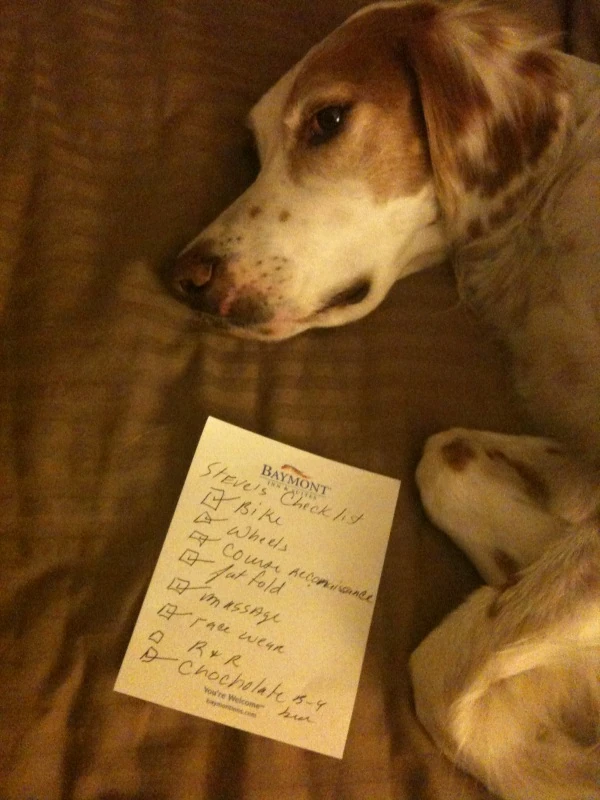 BAYMONT
INN & SUITES
Steve's Checklist
Bike
Wheels
Course reconnisance
fat fold
massage
race wear
R & R
Chocholate B-4
You're Welcome℠
baymontinns.com